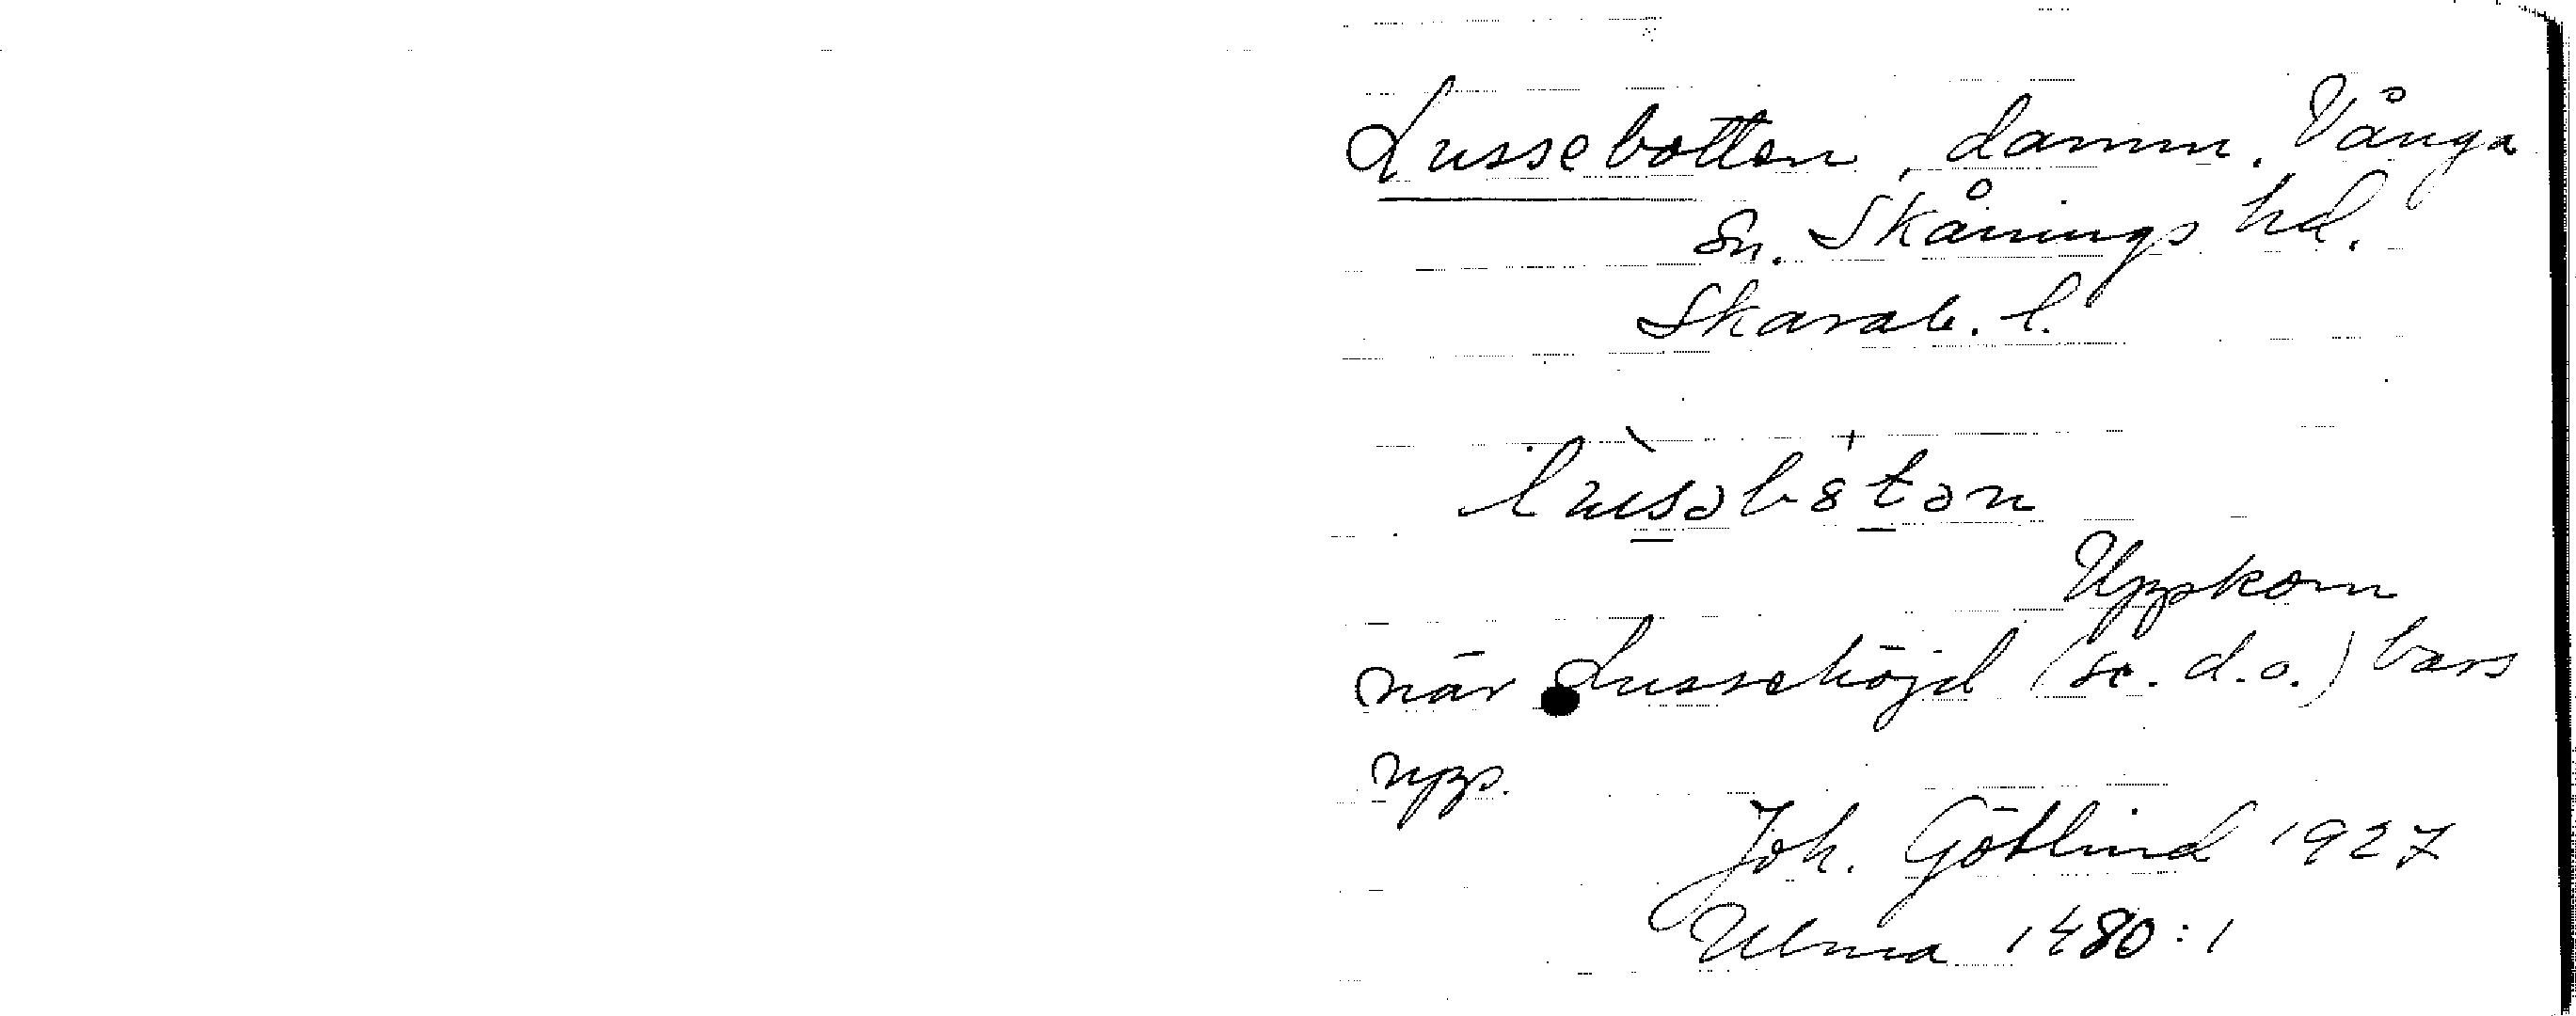 Lussebotten, damm. Vånga
sn. Skånings hd.
Skarab. l.
lùsəbȣtən
Uppkom
när Lussehöjd (se. d.o.) bars
upp.
Joh. Götlind 1927
Ulma 1480:1